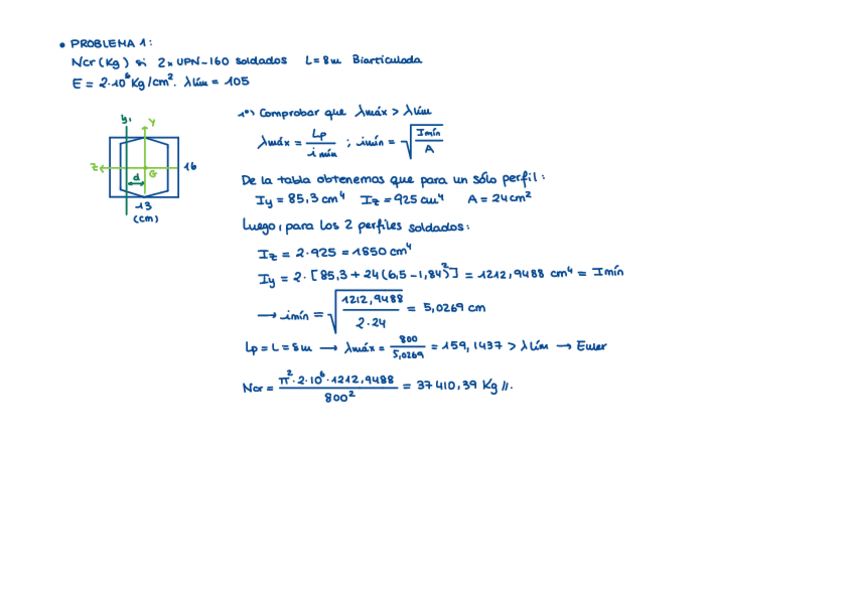 • PROBLEMA 1:
Ncr (Kg) si 2x UPN-160 soldados L=8m Biarticulada
E = 2·10⁶ Kg/cm². λlím = 105
1º) Comprobar que λmáx > λlím
λmáx = Lp / imín ; imín = √(Imín / A)
y₁ Y
Z G 16
d
13
(cm)
De la tabla obtenemos que para un sólo perfil:
Iy = 85,3 cm⁴ Iz = 925 cm⁴ A = 24cm²
Luego, para los 2 perfiles soldados:
Iz = 2·925 = 1850 cm⁴
Iy = 2·[85,3 + 24(6,5 - 1,84)²] = 1212,9488 cm⁴ = Imín
→ imín = √(1212,9488 / 2·24) = 5,0269 cm
Lp = L = 8m → λmáx = 800 / 5,0269 = 159,1437 > λlím → Euler
Ncr = π²·2·10⁶·1212,9488 / 800² = 37410,39 Kg //.